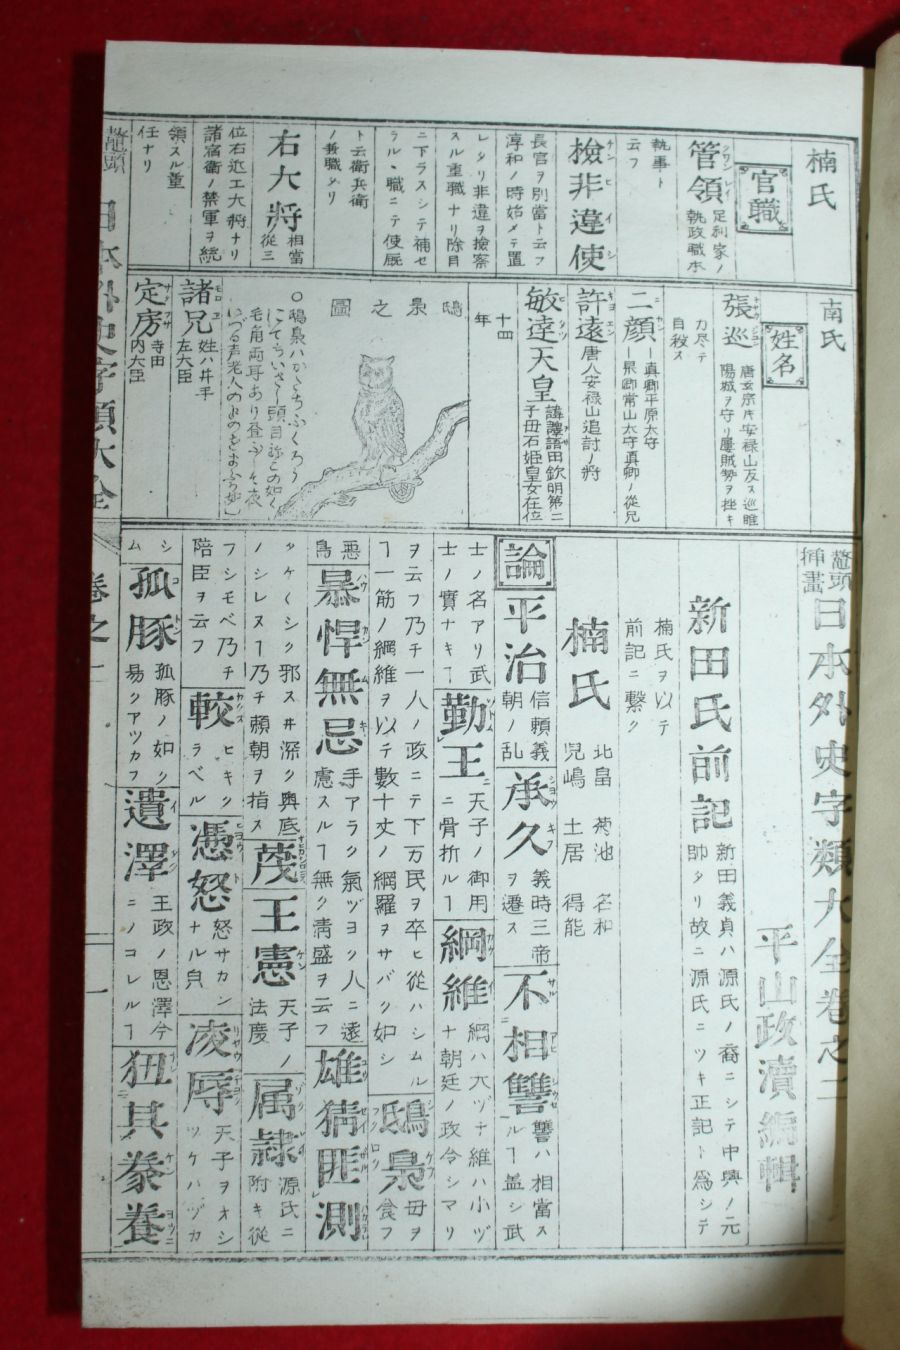 楠氏
官職
管領 クワンレイ 足利家ノ執政職本
執事ト云フ
檢非違使 ケンヒイシ
長官ヲ別當ト云フ淳和ノ時始メテ置
レタリ非違ヲ撿察スル重職ナリ除目
ニ下ラスシテ補セラル、職ニテ使廐
ト云衛兵衛ノ兼職タリ
右大將 相當從三
位右近工大將ナリ諸宿衛ノ禁軍ヲ統
領スル重任ナリ
南氏
姓名
張巡 唐玄宗ノ時安禄山反ス巡睢陽城ヲ守リ屢賊勢ヲ挫キ
力尽テ自殺ス
二顔 真卿平原太守 杲卿常山太守真卿ノ從兄
許遠 キヨエン 唐人安禄山追討ノ將
敏達天皇 諱譯語田欽明第二子母石姫皇女在位
十四年
鴟梟之圖
○鴟梟ハかたちふくろうにてちいさし頭目ねこの如く
毛角両耳あり昼ふし夜いづる声老人の
諸兄 モロヱ 姓ハ井手左大臣
定房 サダフサ 寺田内大臣
鼇頭挿畫 日本外史字類大全卷之二
平山政瀆編輯
新田氏前記 新田義貞ハ源氏ノ裔ニシテ中興ノ元帥タリ故ニ源氏ニツキ正記ト為シテ
楠氏ヲ以テ前記ニ繫ク
楠氏 北畠 菊池 名和 児嶋 土居 得能
論 平治 信頼義朝ノ乱 承久 シヨウキフ 義時三帝ヲ遷ス 不相讐 サルアヒシウセ 讐ハ相當スルヿ盖シ武
士ノ名アリ武士ノ實ナキヿ 勤王 天子ノ御用ニ骨折ルヿ 綱維 カウイ 綱ハ大ヅナ維ハ小ヅナ朝廷ノ政令シマリ
ヲ云フ乃チ一人ノ政ニテ下万民ヲ卒ヒ從ハシムルヿ一筋ノ綱維ヲ以テ數十丈ノ綱羅ヲサバク如シ 鴟梟 シケフ フクロウ 母ヲ食フ
悪鳥 暴悍無忌 バウカンムキ 手アラク氣ヅヨク人ニ遠慮スルヿ無ク淸盛ヲ云フ 雄猜匪測 ユウサイハカラレズ
タケ〱シク邪スヰ深ク輿底ノシレヌヿ乃チ賴朝ヲ指ス 蔑 ナヒガシロニス 王憲 ケン 天子ノ法度 属隷 ゾクレイ 源氏ニ附キ從
フシモベ乃チ陪臣ヲ云フ 較 カクス ヒキクラベル 憑怒 ヒヨウト 怒サカンナル皃 凌辱 リヨウジヨク 天子ヲオシツケハヅカ
シム 孤豚 コトン 孤豚ノ如ク易クアツカフ 遺澤 イタク 王政ノ恩澤今ニノコレルヿ 狃其豢養 ナレソノケンヨウニ
鼇頭 日本外史字類大全 卷之二 一